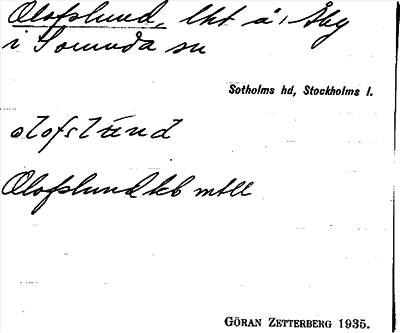 Olofslund, lht å Åby
i Sorunda sn
Sotholms hd, Stockholms l.
olofslund
Olofslund kb mtll
GÖRAN ZETTERBERG 1935.